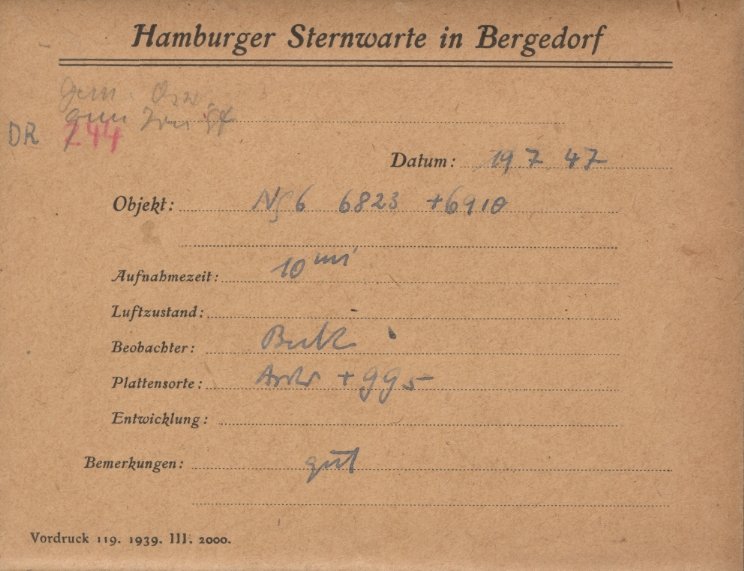 Hamburger Sternwarte in Bergedorf
DR 744
Datum: 19 7 47
Objekt: NG6 6823 +6910
Aufnahmezeit: 10 mi
Luftzustand:
Beobachter:
Plattensorte: + 995
Entwicklung:
Bemerkungen: gut
Vordruck 119. 1939. III. 2000.